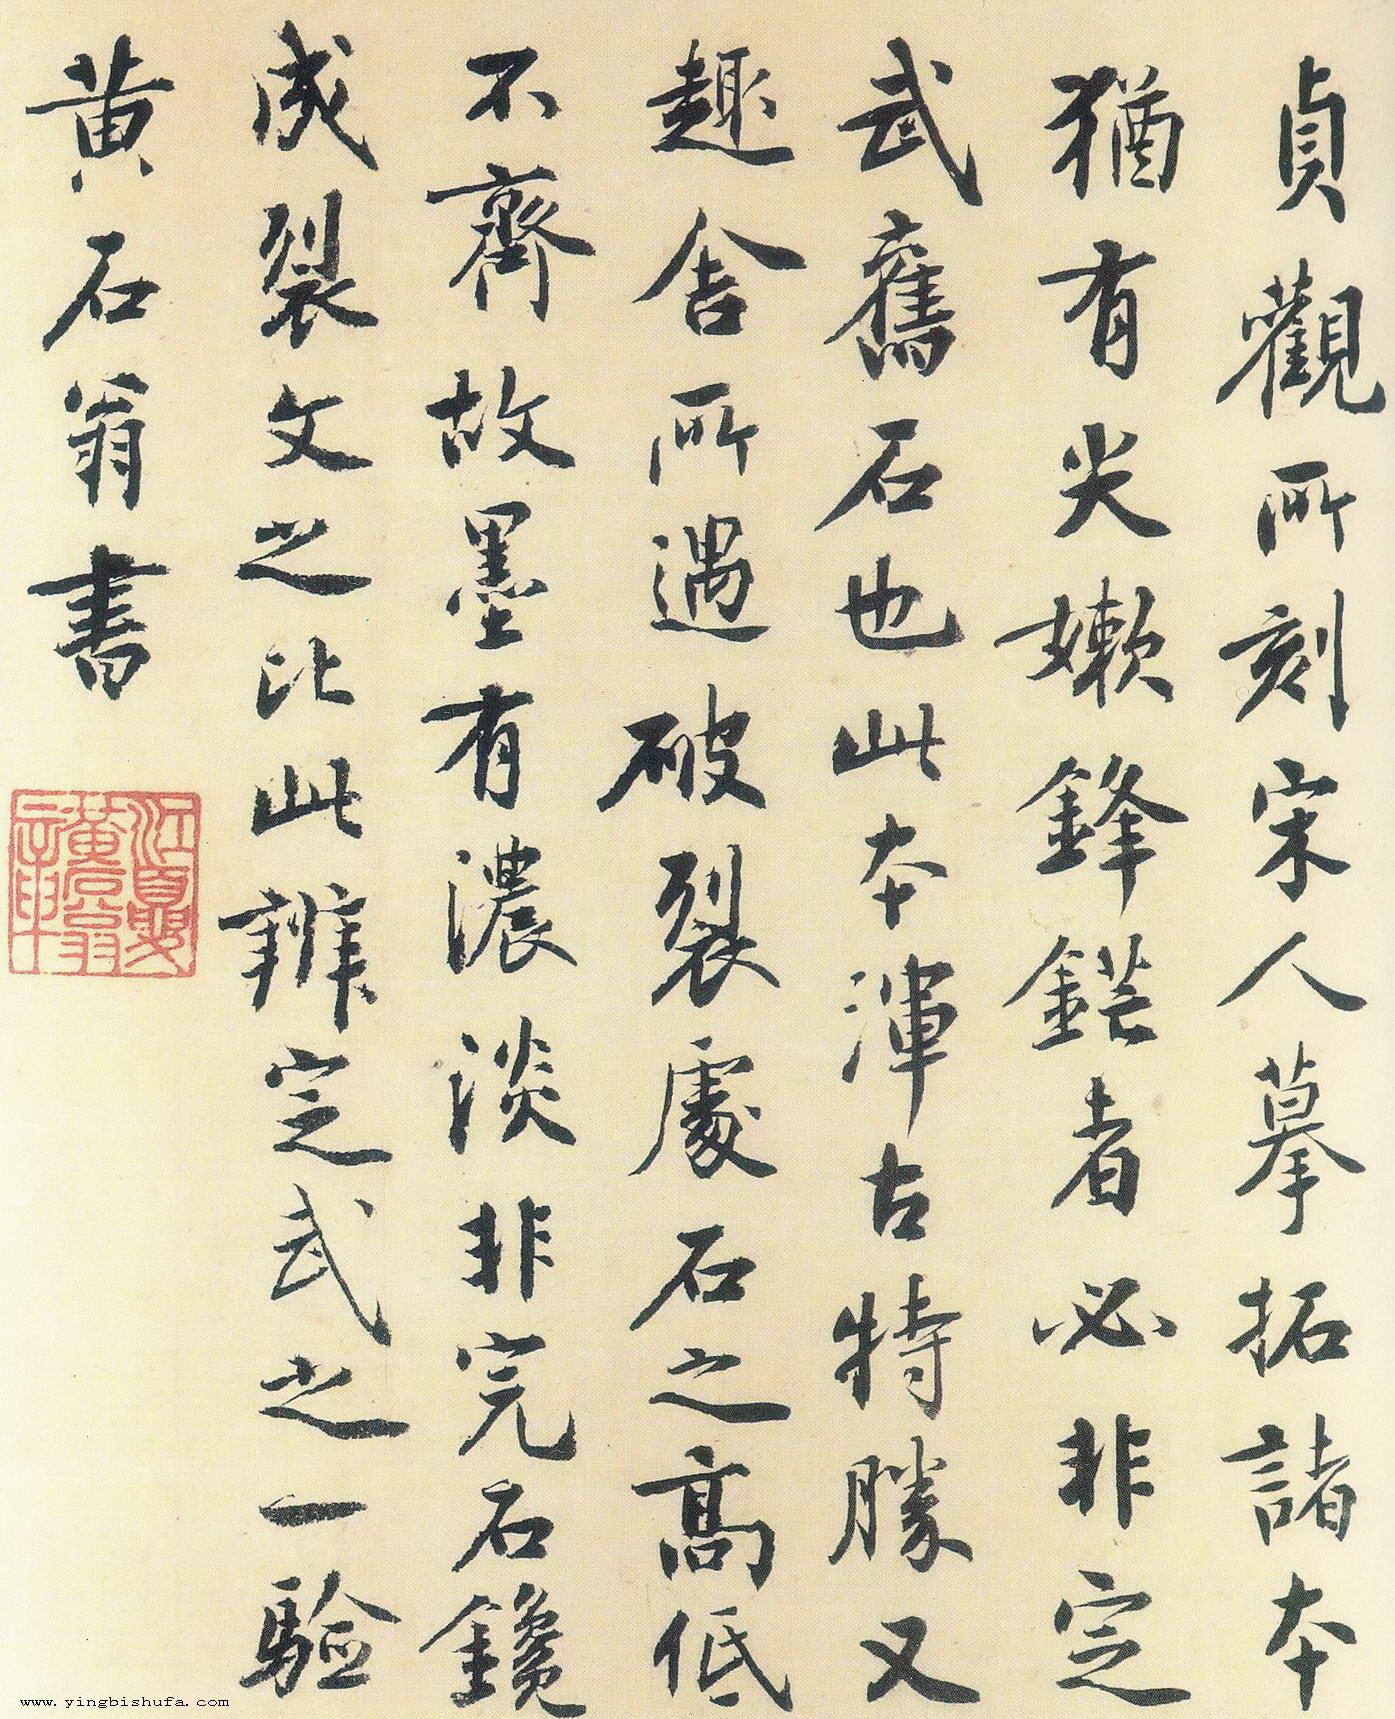 貞觀所刻宋人摹拓諸本
猶有尖嫰鋒鋩者必非定
武舊石也此本渾古特勝又
趣舍所遇破裂處石之高低
不齊故墨有濃淡非完石鑱
成裂文之比此辨定武之一驗
黄石翁書
江夏
黃石翁
www.yingbishufa.com